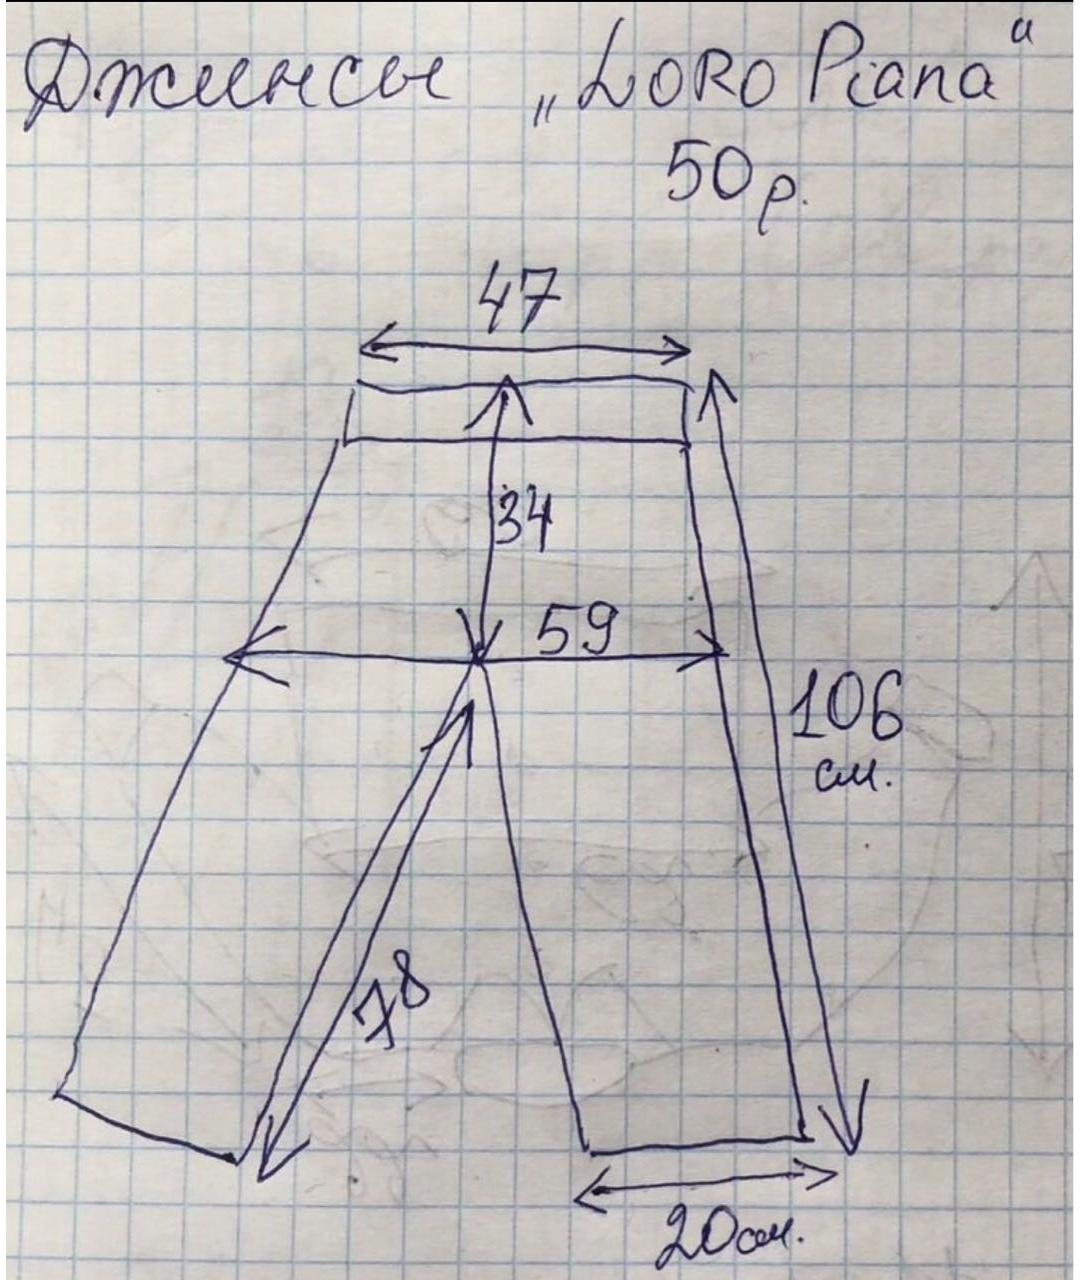 Джинсы „LORO Piana“
50р.
47
34
59
106
см.
78
20см.